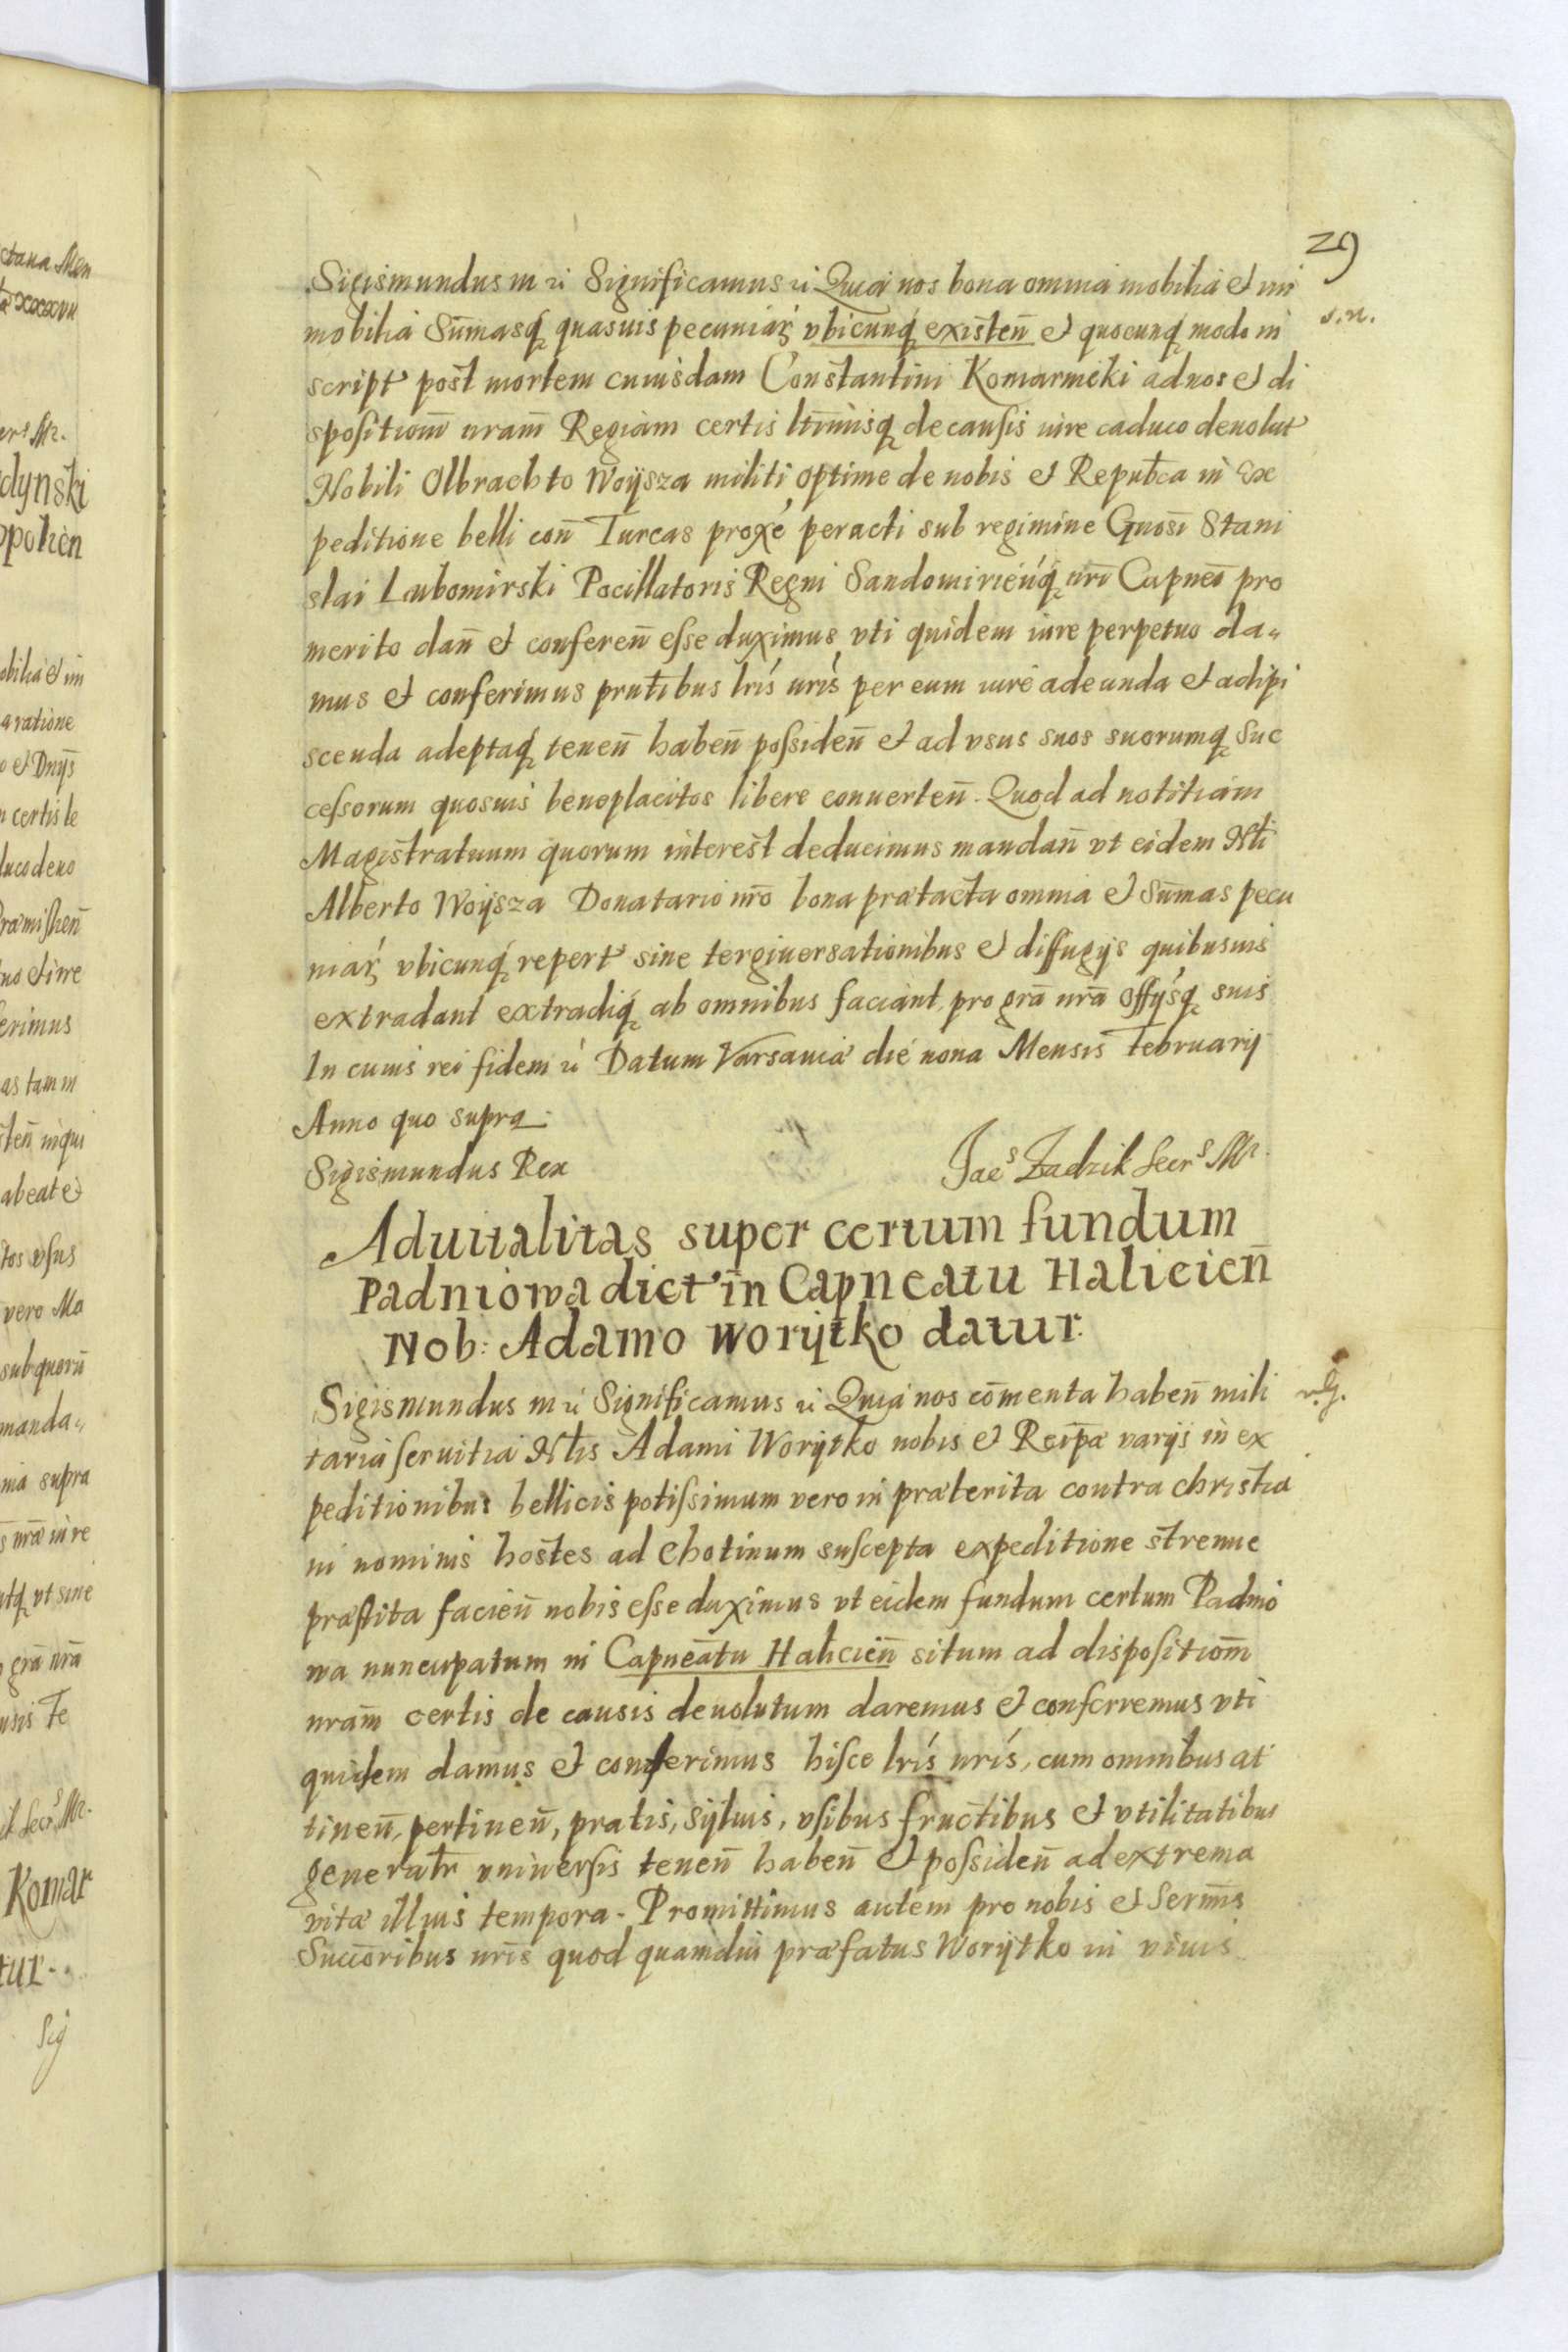 29
Sigismundus III etc Significamus etc Quia nos bona omnia mobilia et im
s. n.
mobilia Sum̄asq̨ quasuis pecuniar̨ vbicunq̨ existen̄ et quocunq̨ modo in
script post mortem cuiusdam Constantini Komarnicki ad nos et di
spositiom̄ nram̄ Regiam certis ltimisq̨ de causis iure caduco deuolut
Nobili Olbrachto Woÿsza militi optime de nobis et Republ̄ca in Ex
peditione belli con̄ Turcas proxe peracti sub regimine Gnosi Stani
slai Lubomirski Pocillatoris Regni Sandomirien̄q̨ nri Capnei pro
merito dan̄ et conferen̄ esse duximus, vti quidem iure perpetuo da=
mus et conferimus prntibus lris nris per eum iure adeunda et adipi
scenda adeptaq̨ tenen̄ haben̄ possiden̄ et ad vsus suos suorumq̨ Suc
cessorum quosuis beneplacitos libere conuerten̄. Quod ad notitiam
Magistratuum quorum interest deducimus mandan̄ vt eidem Nli
Alberto Woÿsza Donatario nro bona prætacta omnia et Sum̄as pecu
niar̨ vbicunq̨ repert sine tergiuersationibus et diffugÿs quibusuis
extradant extradiq̨ ab omnibus faciant, pro grā nrā offÿsq̨ suis
In cuius rei fidem etc Datum Varsauiæ die nona Mensis Februarÿ
Anno quo supra.
Sigismundus Rex
Jacs Zadzik Secrs Mr.
Aduitalitas super certum fundum
Padniowa dict in Capneatu Halicien̄
Nob: Adamo Worÿtko datur.
Sigismundus III etc Significamus etc Quia nos com̄enta haben̄ mili
taria seruitia Nlis Adami Worÿtko nobis et Reipæ varÿs in ex
peditionibus bellicis potissimum vero in præterita contra christia
ni nominis hostes ad Chotinum suscepta expeditione strenue
præstita facien̄ nobis esse duximus vt eidem fundum certum Padnio
wa nuncupatum in Capneatu Halicien̄ situm ad dispositiom̄
nram̄ certis de causis deuolutum daremus et conferremus vti
quidem damus et conferimus hisce lris nris, cum omnibus at
tinen̄, pertinen̄, pratis, sÿluis, vsibus fructibus et vtilitatibus
generatr vniuersis tenen̄ haben̄ et possiden̄ ad extrema
vitæ illius tempora. Promittimus autem pro nobis et Sermis
Succoribus nris quod quamdiu præfatus Worÿtko in viuis